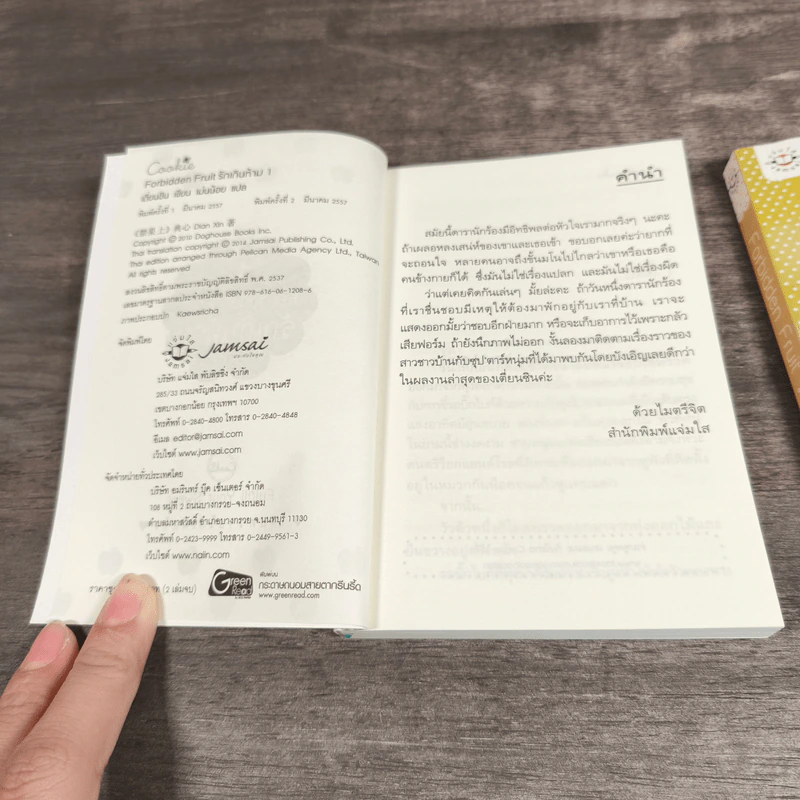 Cookie
Forbidden Fruit รักเกินห้าม 1
เตี่ยนซิน เขียน เม่นน้อย แปล
พิมพ์ครั้งที่ 1 มีนาคม 2557 พิมพ์ครั้งที่ 2 มีนาคม 2557
典心 Dian Xin 著
Copyright © 2010 Doghouse Books Inc.
Thai translation copyright © 2014 Jamsai Publishing Co., Ltd.
Thai edition arranged through Pelican Media Agency Ltd., Taiwan
All rights reserved
สงวนลิขสิทธิ์ตามพระราชบัญญัติลิขสิทธิ์ พ.ศ. 2537
เลขมาตรฐานสากลประจำหนังสือ ISBN 978-616-06-1208-6
ภาพประกอบปก Kaewaricha
จัดพิมพ์โดย
jamsai
บริษัท แจ่มใส พับลิชชิ่ง จำกัด
285/33 ถนนจรัญสนิทวงศ์ แขวงบางขุนศรี
เขตบางกอกน้อย กรุงเทพฯ 10700
โทรศัพท์ 0-2840-4800 โทรสาร 0-2840-4848
อีเมล editor@jamsai.com
เว็บไซต์ www.jamsai.com
จัดจำหน่ายทั่วประเทศโดย
บริษัท อมรินทร์ บุ๊ค เซ็นเตอร์ จำกัด
108 หมู่ที่ 2 ถนนบางกรวย-จงถนอม
ตำบลมหาสวัสดิ์ อำเภอบางกรวย จ.นนทบุรี 11130
โทรศัพท์ 0-2423-9999 โทรสาร 0-2449-9561-3
เว็บไซต์ www.naiin.com
(2 เล่มจบ)
Green Read
พิมพ์บน
กระดาษถนอมสายตากรีนรี้ด
www.greenread.com
คำนำ
สมัยนี้ดารานักร้องมีอิทธิพลต่อหัวใจเรามากจริงๆ นะคะ
ถ้าเผลอหลงเสน่ห์ของเขาและเธอเข้า ขอบอกเลยค่ะว่ายากที่
จะถอนใจ หลายคนอาจถึงขั้นมโนไปไกลว่าเขาหรือเธอคือ
คนข้างกายก็ได้ ซึ่งมันไม่ใช่เรื่องแปลก และมันไม่ใช่เรื่องผิด
ว่าแต่เคยคิดกันเล่นๆ มั้ยล่ะคะ ถ้าวันหนึ่งดารานักร้อง
ที่เราชื่นชอบมีเหตุให้ต้องมาพักอยู่กับเราที่บ้าน เราจะ
แสดงออกมั้ยว่าชอบอีกฝ่ายมาก หรือจะเก็บอาการไว้เพราะกลัว
เสียฟอร์ม ถ้ายังนึกภาพไม่ออก งั้นลองมาติดตามเรื่องราวของ
สาวชาวบ้านกับซุป'ตาร์หนุ่มที่ได้มาพบกันโดยบังเอิญเลยดีกว่า
ในผลงานล่าสุดของเตี่ยนซินค่ะ
ด้วยไมตรีจิต
สำนักพิมพ์แจ่มใส
Forbidden Fruit